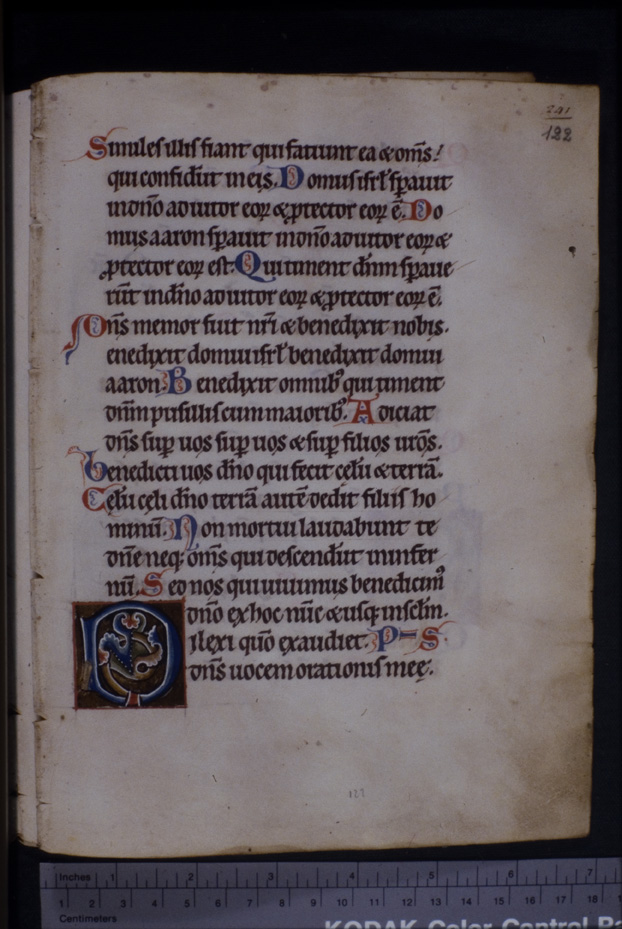 241
122
Similes illis fiant qui faciunt ea & om̄s
qui confidūt in eis. Domus isrl̄ sp̄auit
in dn̄o adiutor eoꝝ & ꝓtector eoꝝ ē. Do
mus aaron sp̄auit in dn̄o adiutor eoꝝ &
ꝓtector eoꝝ est. Qui timent dn̄m sp̄aue
rūt in dn̄o adiutor eoꝝ & ꝓtector eoꝝ ē.
Dn̄s memor fuit nr̄i & benedixit nobis.
enedixit domui isrl̄ benedixit domui
aaron. Benedixit omnibꝰ qui timent
dn̄m pusillis cum maioribꝰ. Adiciat
dn̄s suꝑ uos suꝑ uos & suꝑ filios ur̄os.
Benedicti uos dn̄o qui fecit celū & terrā.
Celū celi dn̄o terrā autē dedit filiis ho
minū. Non mortui laudabunt te
dn̄e neq; om̄s qui descendūt in infer
nū. Sed nos qui uiuimus benedicimꝰ
dn̄o ex hoc nūc & usq; in sc̄lm.
Dilexi quō exaudiet. P S
dn̄s uocem orationis meę.
121
Inches 1 2 3 4 5 6 7
1 2 3 4 5 6 7 8 9 10 11 12 13 14 15 16 17 18
Centimeters
KODAK Color Control